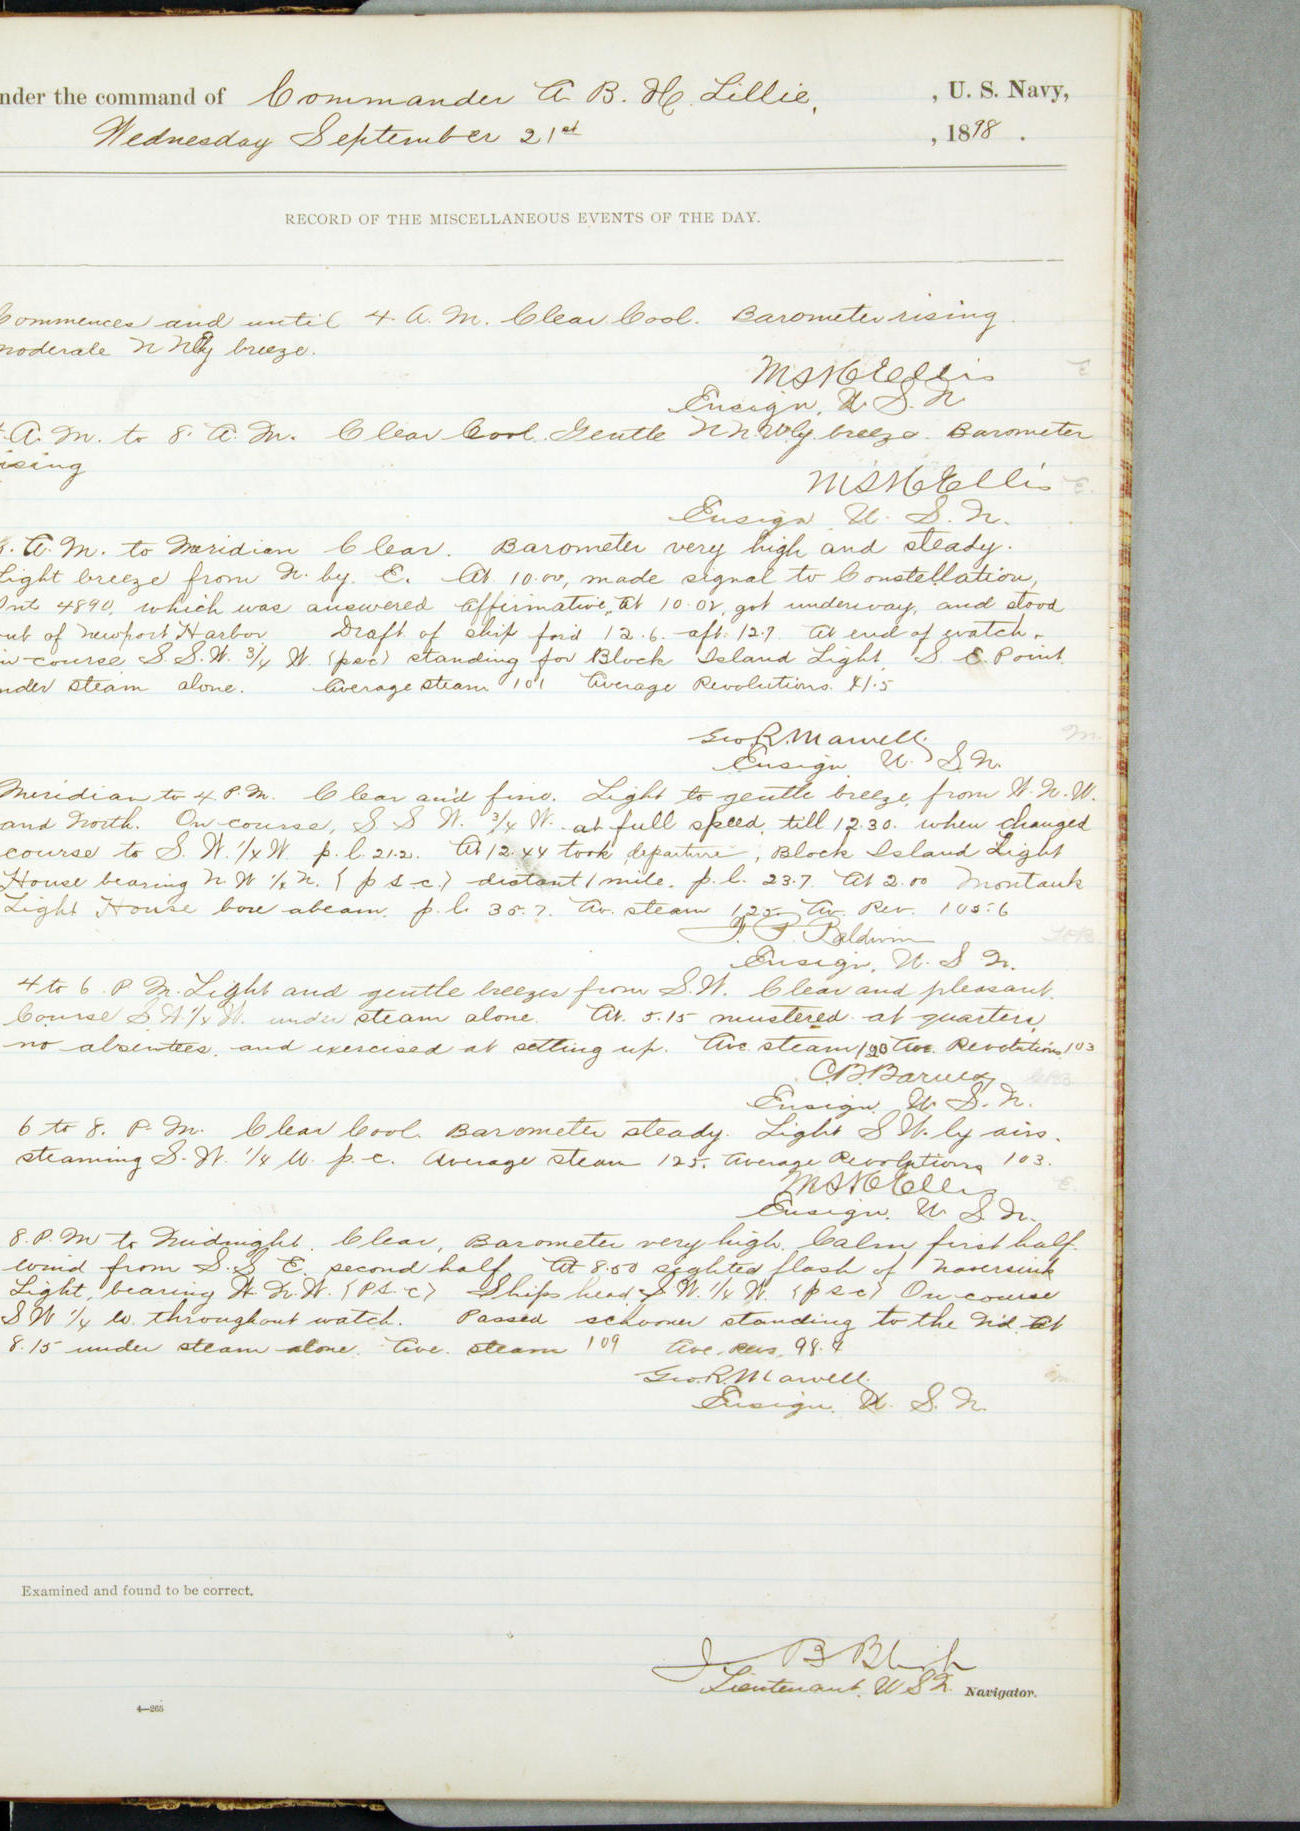 nder the command of Commander A. B. H. Lillie, , U. S. Navy,
Wednesday September 21st , 1898 .
RECORD OF THE MISCELLANEOUS EVENTS OF THE DAY.
Commences and until 4 A. M. Clear Cool. Barometer rising.
moderate breeze.
Ellis
Ensign, U. S. N.
A. M. to 8 A. M. Clear Cool. Gentle N N. W'ly breeze. Barometer
ising
Ellis E.
Ensign U. S. N.
8. A. M. to Meridian Clear. Barometer very high and steady.
Light breeze from N. by E. At 10.00, made signal to Constellation,
Int 4890, which was answered affirmative, At 10.02, got underway, and stood
out of Newport Harbor Draft of ship for'd 12.6. aft. 12.7. At end of watch
on course S. S. W. 3/4 W. (psc) standing for Block Island Light, S. E. Point.
under steam alone. Average steam 101 Average Revolutions. 41.5
Geo. R. Marvell M.
Ensign U. S. N.
Meridian to 4 P. M. Clear and fine. Light to gentle breeze, from W. N. W.
and North. On course, S S W. 3/4 W. at full speed, till 12.30. when changed
course to S. W. 1/4 W. p. l. 21.2. At 12.44 took departure, Block Island Light
House bearing N W 1/2 N. (p s c.) distant 1 mile. p. l. 23.7. At 2.00 Montauk
Light House bore abeam. p. l. 35.7. Av. steam 125. Av. Rev. 105.6
F. P. Baldwin
Ensign, U. S. N.
4 to 6. P. M. Light and gentle breezes from S. W. Clear and pleasant.
Course S W 1/4 W. under steam alone. At 5.15 mustered at quarters,
no absentees, and exercised at setting up. Ave. steam 120 Ave. Revolutions 103
C. B. Barnes
Ensign U. S. N.
6 to 8. P. M. Clear Cool. Barometer steady. Light S W. ly airs.
steaming S. W. 1/4 W. p. c. Average steam 125. Average Revolutions 103.
Ellis E.
Ensign. U. S. N.
8. P. M to Midnight. Clear, Barometer very high. Calm first half.
wind from S. S E. second half. At 8.50 sighted flash of Navesink
Light, bearing W. N. W. (P S. C) Ships head, S. W. 1/4 W. (p s c) On course
S W 1/4 W. throughout watch. Passed schooner standing to the N'd at
8.15 under steam alone. Ave. steam 109 Ave. Revs. 98.4
Geo. R. Marvell
Ensign. U. S. N.
Examined and found to be correct.
J B Blish
Lieutenant, U S N. Navigator.
4—265